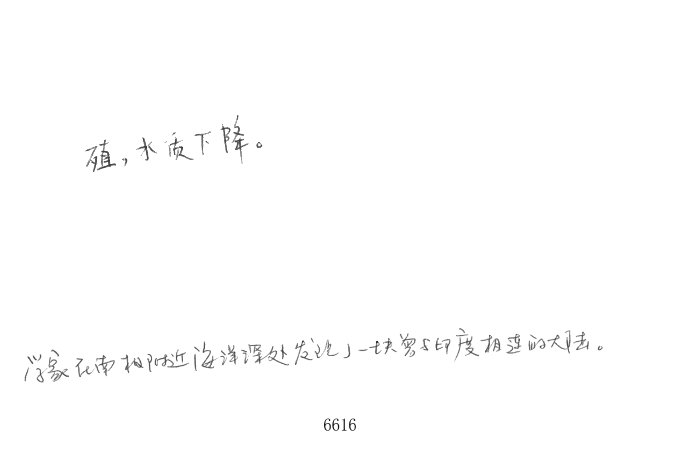 殖,水质下降。
学家在南极附近海洋深处发现了一块曾与印度相连的大陆。
6616